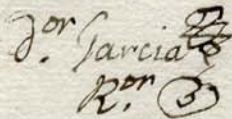 Dor. Garcia
Ror.